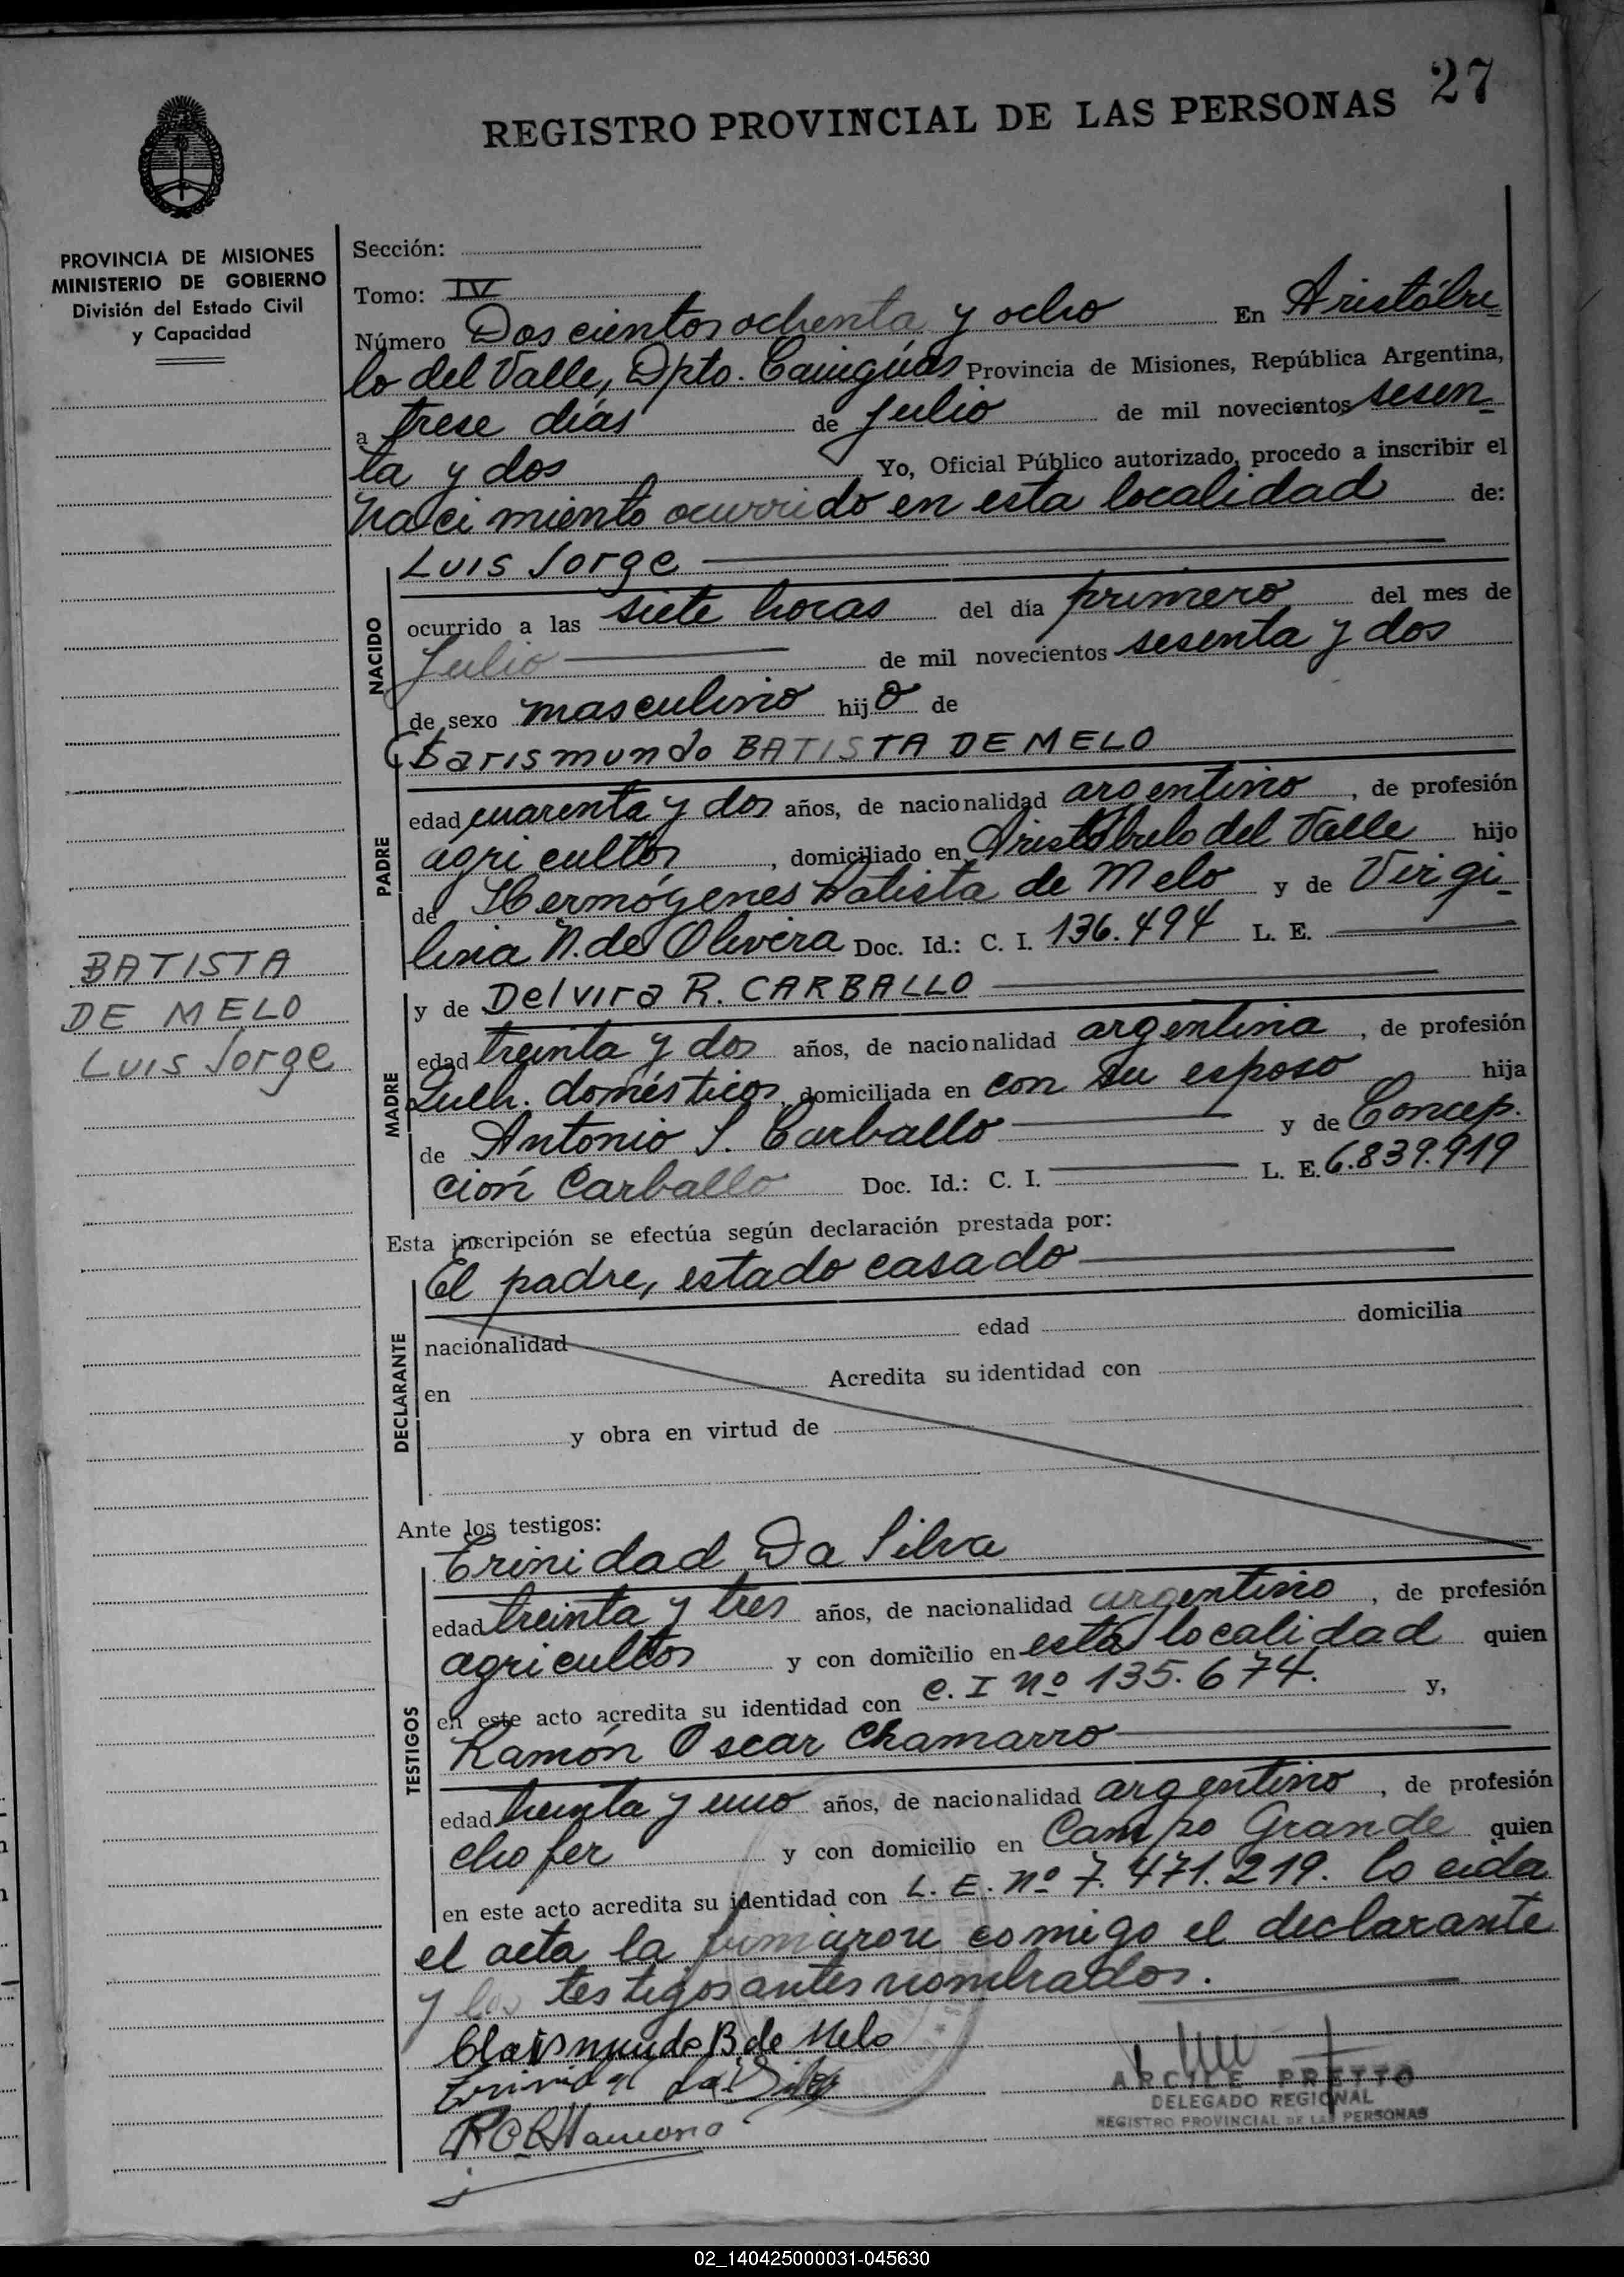 27
REGISTRO PROVINCIAL DE LAS PERSONAS
PROVINCIA DE MISIONES
MINISTERIO DE GOBIERNO
División del Estado Civil
y Capacidad
BATISTA
DE MELO
Luis Jorge
Sección:
Tomo: IV
Número Dos cientos ochenta y ocho En Aristóbu
lo del Valle, Dpto. Cainguás Provincia de Misiones, República Argentina,
a trese días de Julio de mil novecientos sesen
ta y dos Yo, Oficial Público autorizado, procedo a inscribir el
Naci miento ocurrido en esta localidad de:
NACIDO
Luis Jorge
ocurrido a las siete horas del día primero del mes de
Julio de mil novecientos sesenta y dos
de sexo masculino hijo de
PADRE
Clarismundo BATISTA DE MELO
edad cuarenta y dos años, de nacionalidad argentino, de profesión
agricultor, domiciliado en Aristóbulo del Valle hijo
de Hermógenes Batista de Melo y de Virgi-
lina N. de Olivera Doc. Id.: C. I. 136.494 L. E.
MADRE
y de Delvira R. CARBALLO
edad treinta y dos años, de nacionalidad argentina, de profesión
Queh. domésticos, domiciliada en con su esposo hija
de Antonio S. Carballo y de Concep.
ción Carballo Doc. Id.: C. I. L. E. 6.839.919
Esta inscripción se efectúa según declaración prestada por:
DECLARANTE
El padre, estado casado
nacionalidad edad domicilia
en Acredita su identidad con
y obra en virtud de
Ante los testigos:
TESTIGOS
Trinidad Da Silva
edad treinta y tres años, de nacionalidad argentino, de profesión
agricultor y con domicilio en esta localidad quien
en este acto acredita su identidad con C. I Nº 135.674. y,
Ramón Oscar Chamarro
edad treinta y uno años, de nacionalidad argentino, de profesión
chofer y con domicilio en Campo Grande quien
en este acto acredita su identidad con L. E. Nº 7.471.219. Lo eida
el acta la firmaron comigo el declarante
y los testigos antes nombrados.
Clarismundo B. de Melo
Trinidad da Silva
ARCILE PRETTO
DELEGADO REGIONAL
REGISTRO PROVINCIAL DE LAS PERSONAS
02_140425000031-045630